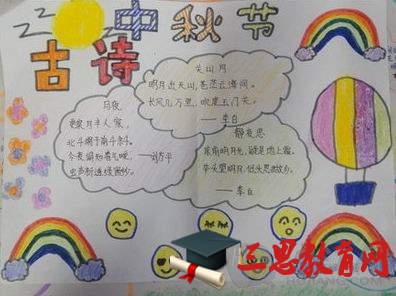 ZZZ 中秋节
古诗
关山月
明月出天山，苍茫云海间。
长风几万里，吹度玉门关。
——李白
月夜
更深月半人家，
北斗阑干南斗斜。
今夜偏知春气暖，
虫声新透绿窗纱。
——刘方平
静夜思
床前明月光，疑是地上霜。
举头望明月，低头思故乡。
——李白
三思教育网